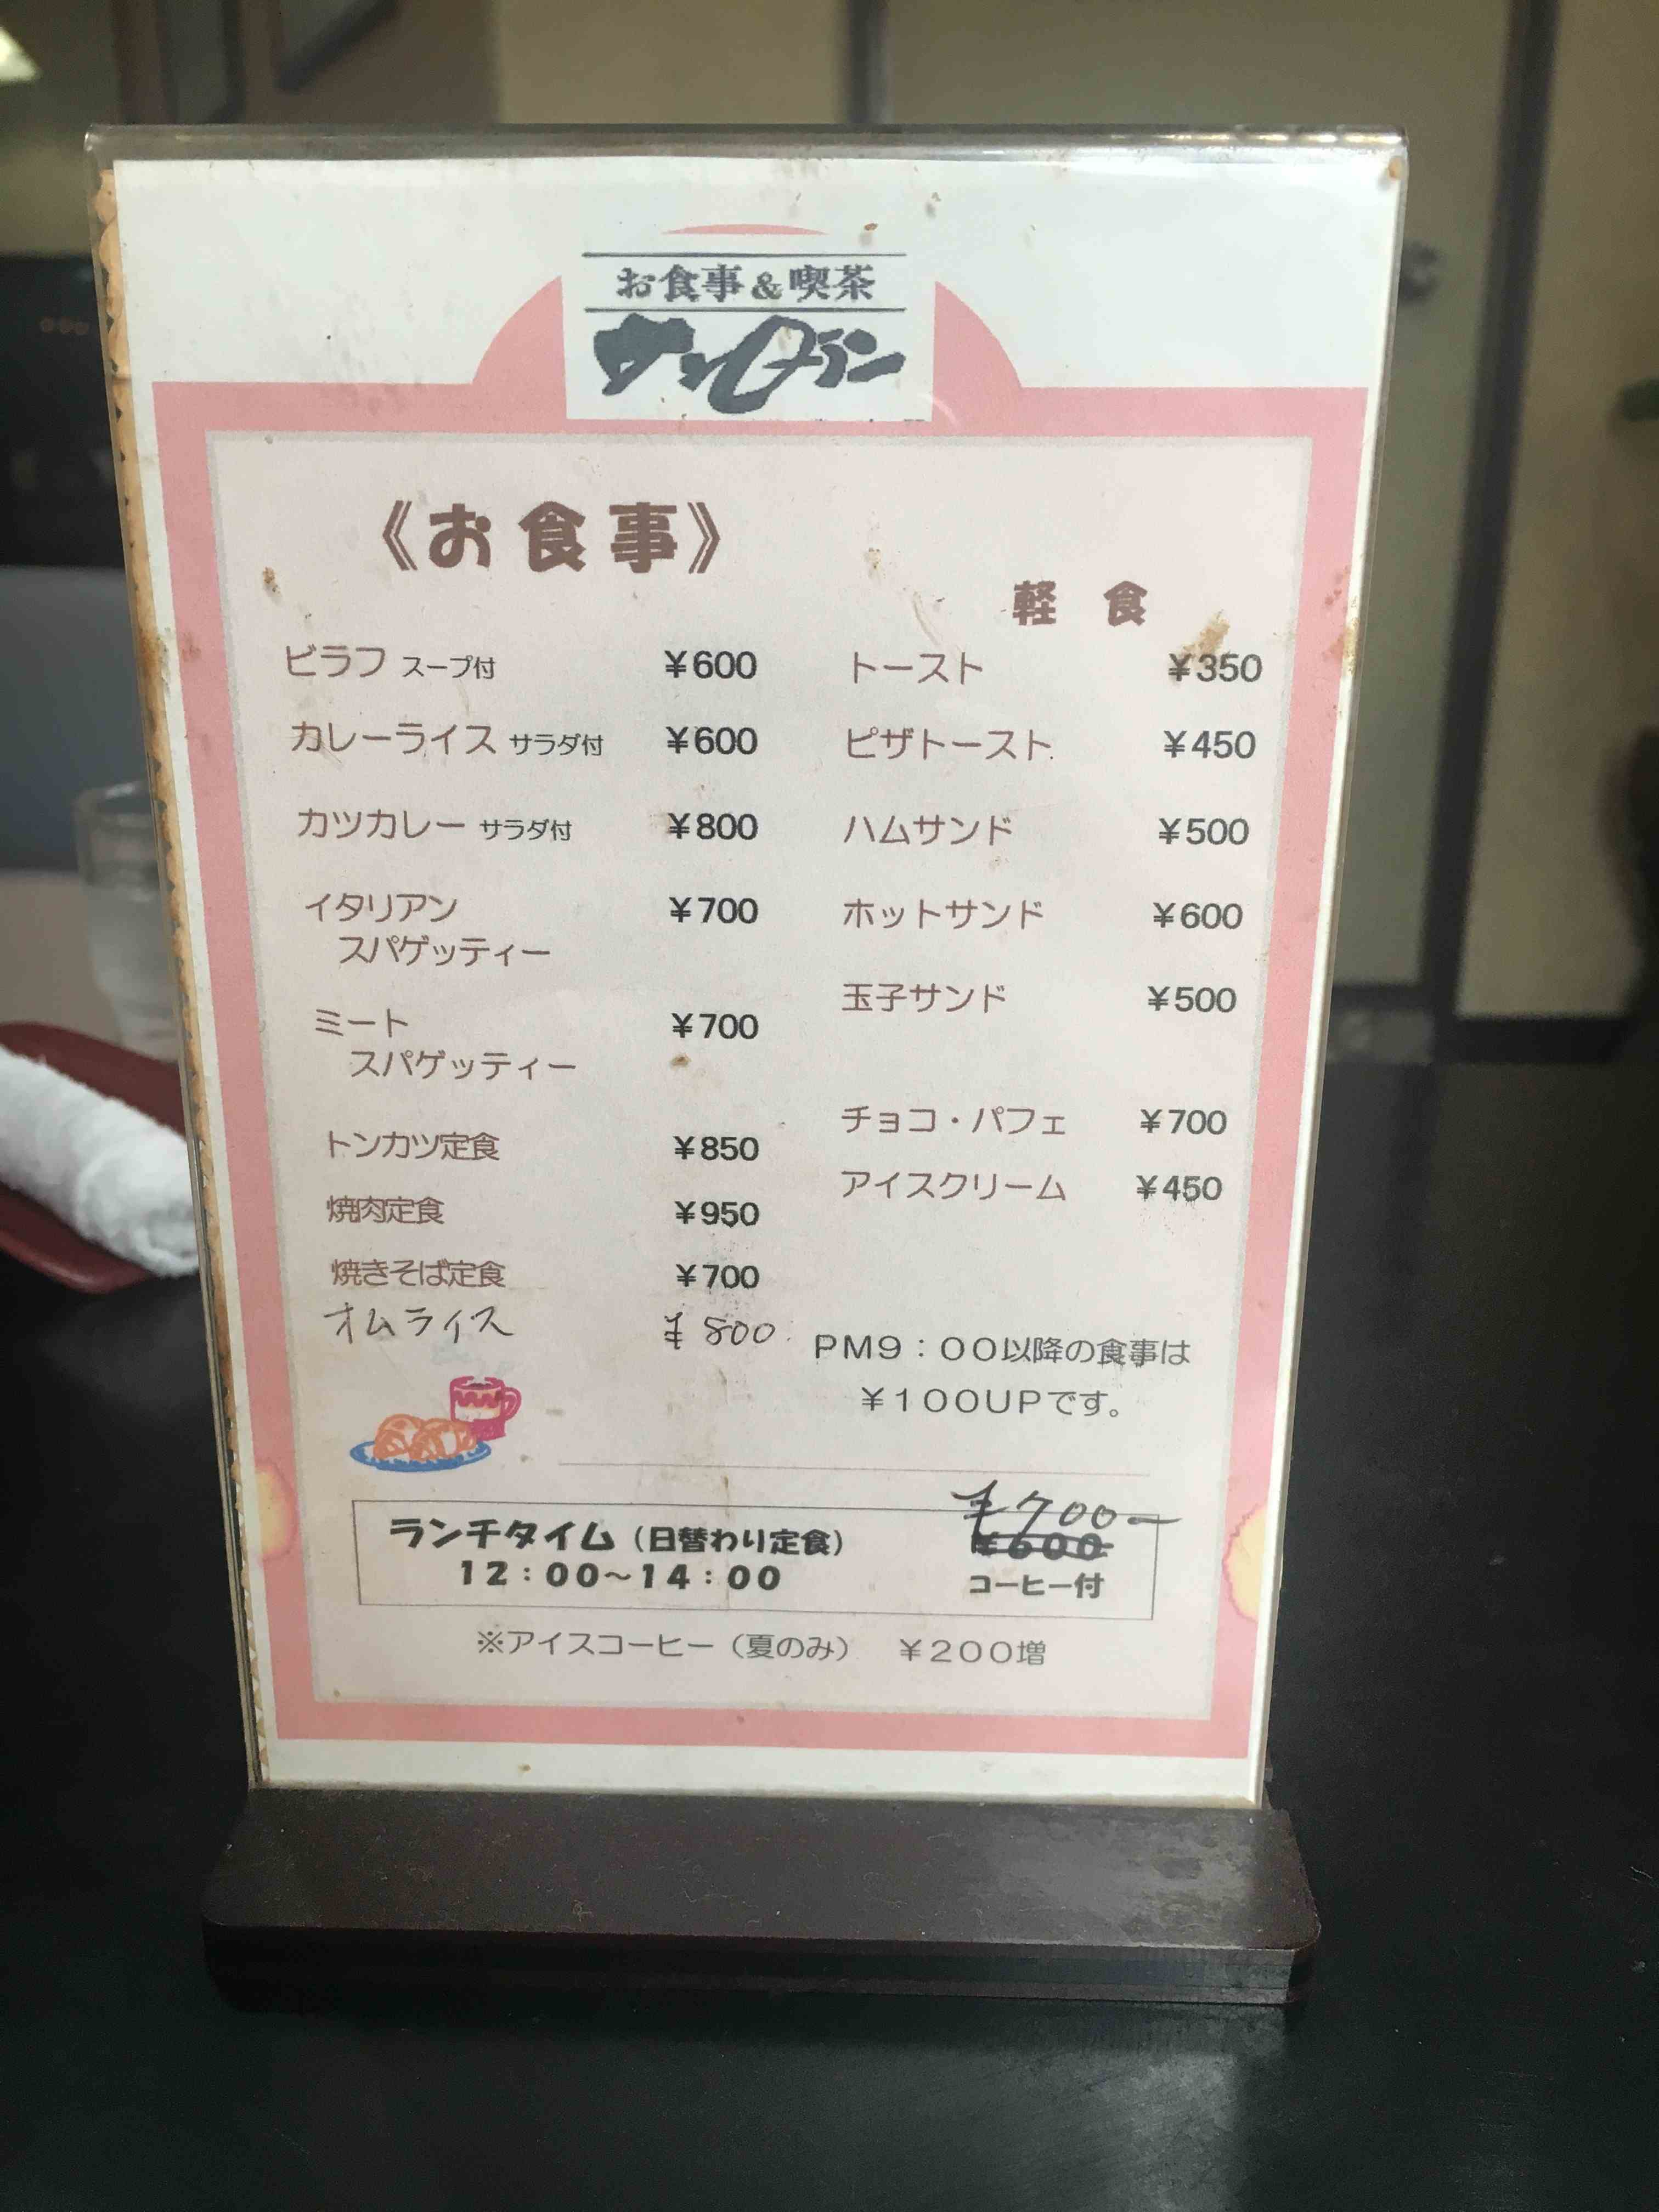 お食事&喫茶
サンジャン
《お食事》
ピラフ スープ付 ¥600
カレーライス サラダ付 ¥600
カツカレー サラダ付 ¥800
イタリアン ¥700
スパゲッティー
ミート ¥700
スパゲッティー
トンカツ定食 ¥850
焼肉定食 ¥950
焼きそば定食 ¥700
オムライス ¥800
軽食
トースト ¥350
ピザトースト ¥450
ハムサンド ¥500
ホットサンド ¥600
玉子サンド ¥500
チョコ・パフェ ¥700
アイスクリーム ¥450
PM9:00以降の食事は
¥100UPです。
¥700-
ランチタイム(日替わり定食) ¥600
12:00~14:00 コーヒー付
※アイスコーヒー(夏のみ) ¥200増